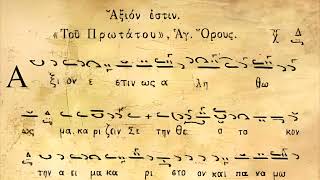 Ἄξιόν ἐστιν.
«Τοῦ Πρωτάτου», Ἁγ. Ὄρους.
Α ξι ον ε στιν ως α λη θω
ως μα κα ρι ζειν Σε την Θε ο το κον
την α ει μα κα ρι στο ον και πα να μω